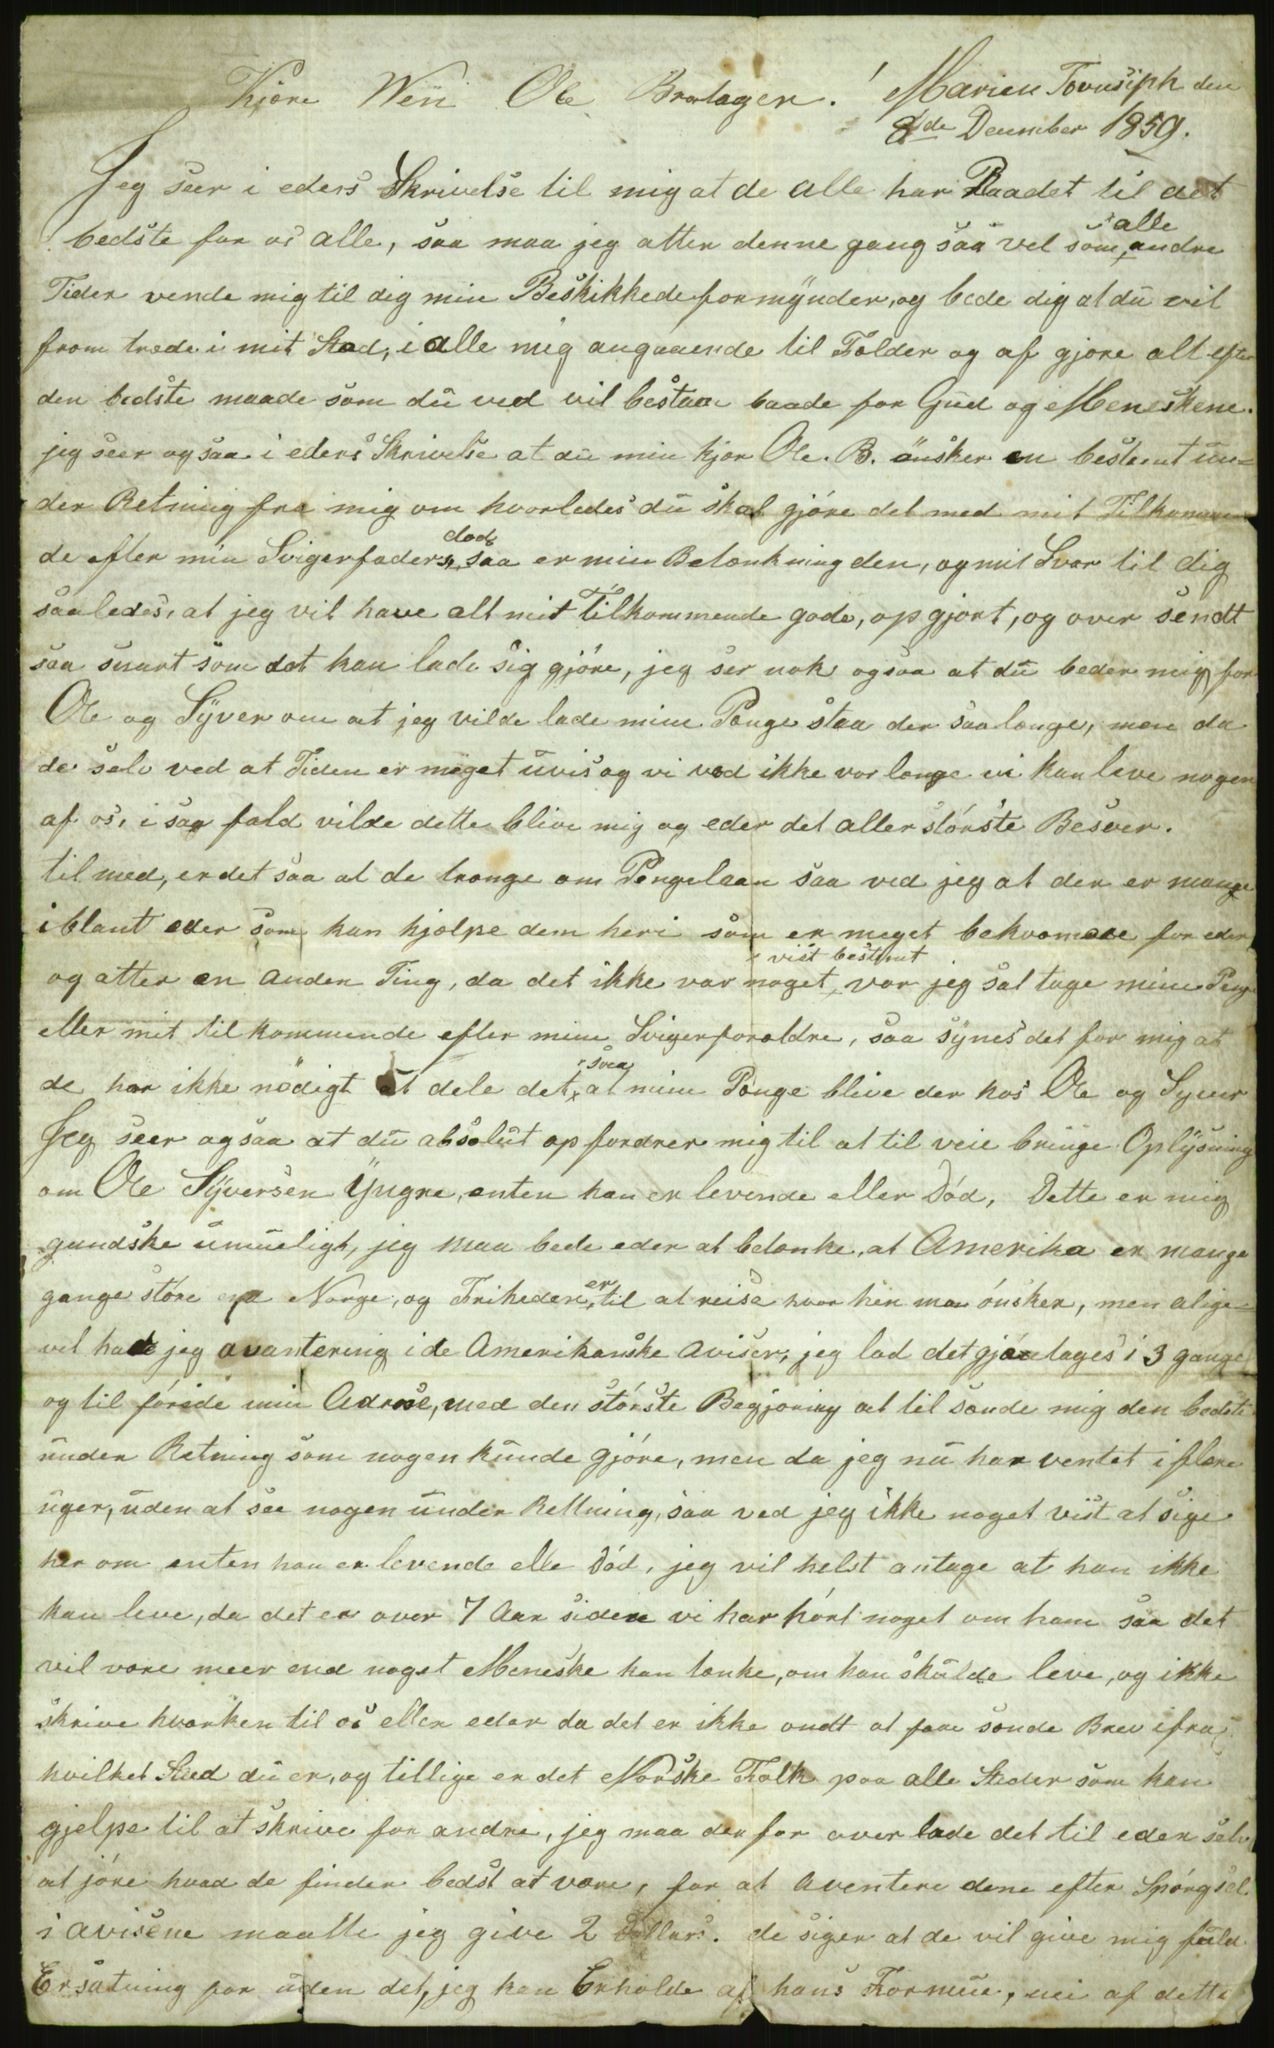 Kjære Wen Ole Braatager. ! Marien Tovnsiph den
8de December 1859.
Jeg seer i eders Skrivelse til mig at de alle har Raadet til det
bedste for os alle, saa maa jeg atter denne gang saa vel som alle andre
Tider vende mig til dig min Beskikkede formynder, og bede dig at du vil
from træde i mit Stad, i alle mig angaaende til Fælder og af gjøre alt efter
den bedste maade som du ved vil bestaa baade for Gud og Meneskene.
jeg seer og saa i eders Skrivelse at du min kjær Ole. B. ønsker en bestemt un=
der Retning fra mig om hvorledes du skal gjøre det med mit Tilkommen
de efter min Svigerfaders død, saa er min Betænkning den, og mit Svar til dig
saaledes, at jeg vil have alt mit Tilkommende gode, op gjort, og over sendt
saa snart som det kan lade sig gjøre, jeg ser nok ogsaa at du beder mig for
Ole og Syver om at jeg vilde lade mine Penge staa der saalænge, men da
de selv ved at Tiden er meget uvis og vi ved ikke vor længe vi kan leve nogen
af os, i saa fald vilde dette blive mig og eder det aller største Besver.
til med, er det saa at de trænge om Pengelaan saa ved jeg at der er mange
iblant eder som kan hjælpe dem heri som er meget bekvæmere for eder,
og atter en anden Ting, da det ikke var noget vist bestemt vor jeg sal tage mine Penge
eller mit til kommende efter mine Svigerforældre, saa synes det for mig at
de har ikke nødigt at dele det, svea at mine Penge blive der hos Ole og Syver
Jeg seer ogsaa at du absolut op fordrer mig til at til veie bringe Oplysning
om Ole Syversen Yngre, enten han er levende eller Død, Dette er mig
gandske umueligt, jeg maa bede eder at betænke, at Amerika er mange
gange støre end Norge, og Friheden er til at reise hvor hen man ønsker, men alige=
vel hade jeg avantering i de Amerikanske aviser, jeg lod det gjøntages i 3 gange
og til føiede min Adrese, med den største Begjæring at til sænde mig den bedste
under Retning som nogen kunde gjøre, men da jeg nu har ventet i flere
uger, uden at see nogen under Rettning, saa ved jeg ikke noget vist at sige
her om enten han er levende elle Død, jeg vil helst antage at han ikke
kan leve, da det er over 7 Aar sidene vi har hørt noget om ham saa det
vil være meer end noget Meneske kan tænke, om han skulde leve, og ikke
skrive hvarken til os eller eder da det er ikke ondt at faae sænde Brev ifra
hvilket Sted du er, og tillige er det Norske Folk paa alle Steder som kan
gjelpe til at skrive for andre, jeg maa der for over lade det til eder selv
at jøre hvad de finder bedst at være, for at aventere dene efter Spørgsel
i aviserne maatte jeg give 2 Dollars. de siger at de vil give mig fuld
Ersatning for uden det, jeg kan Erholde af hans Formue, nei af dette